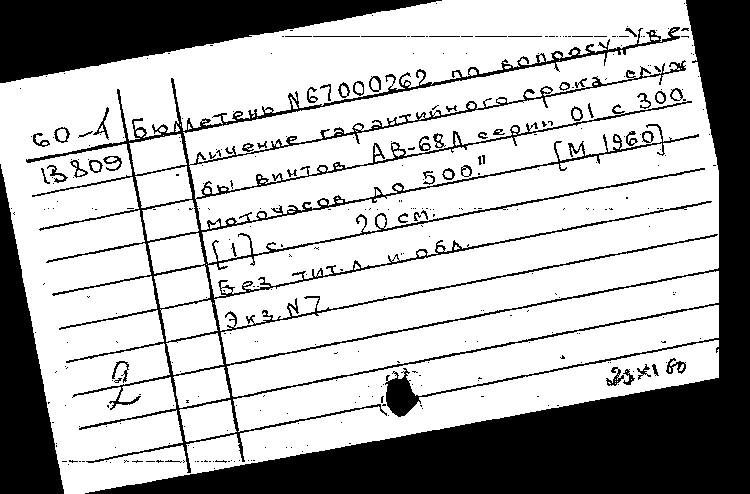 60-4 Бюллетень N67000262 по вопросу „Уве-
13809 личение гарантийного срока служ-
бы винтов АВ-68Д серии 01 с 300
моточасов до 500." [М, 1960].
[1] с. 20 см.
Без тит. л. и обл.
Экз. N7
2
XI 60